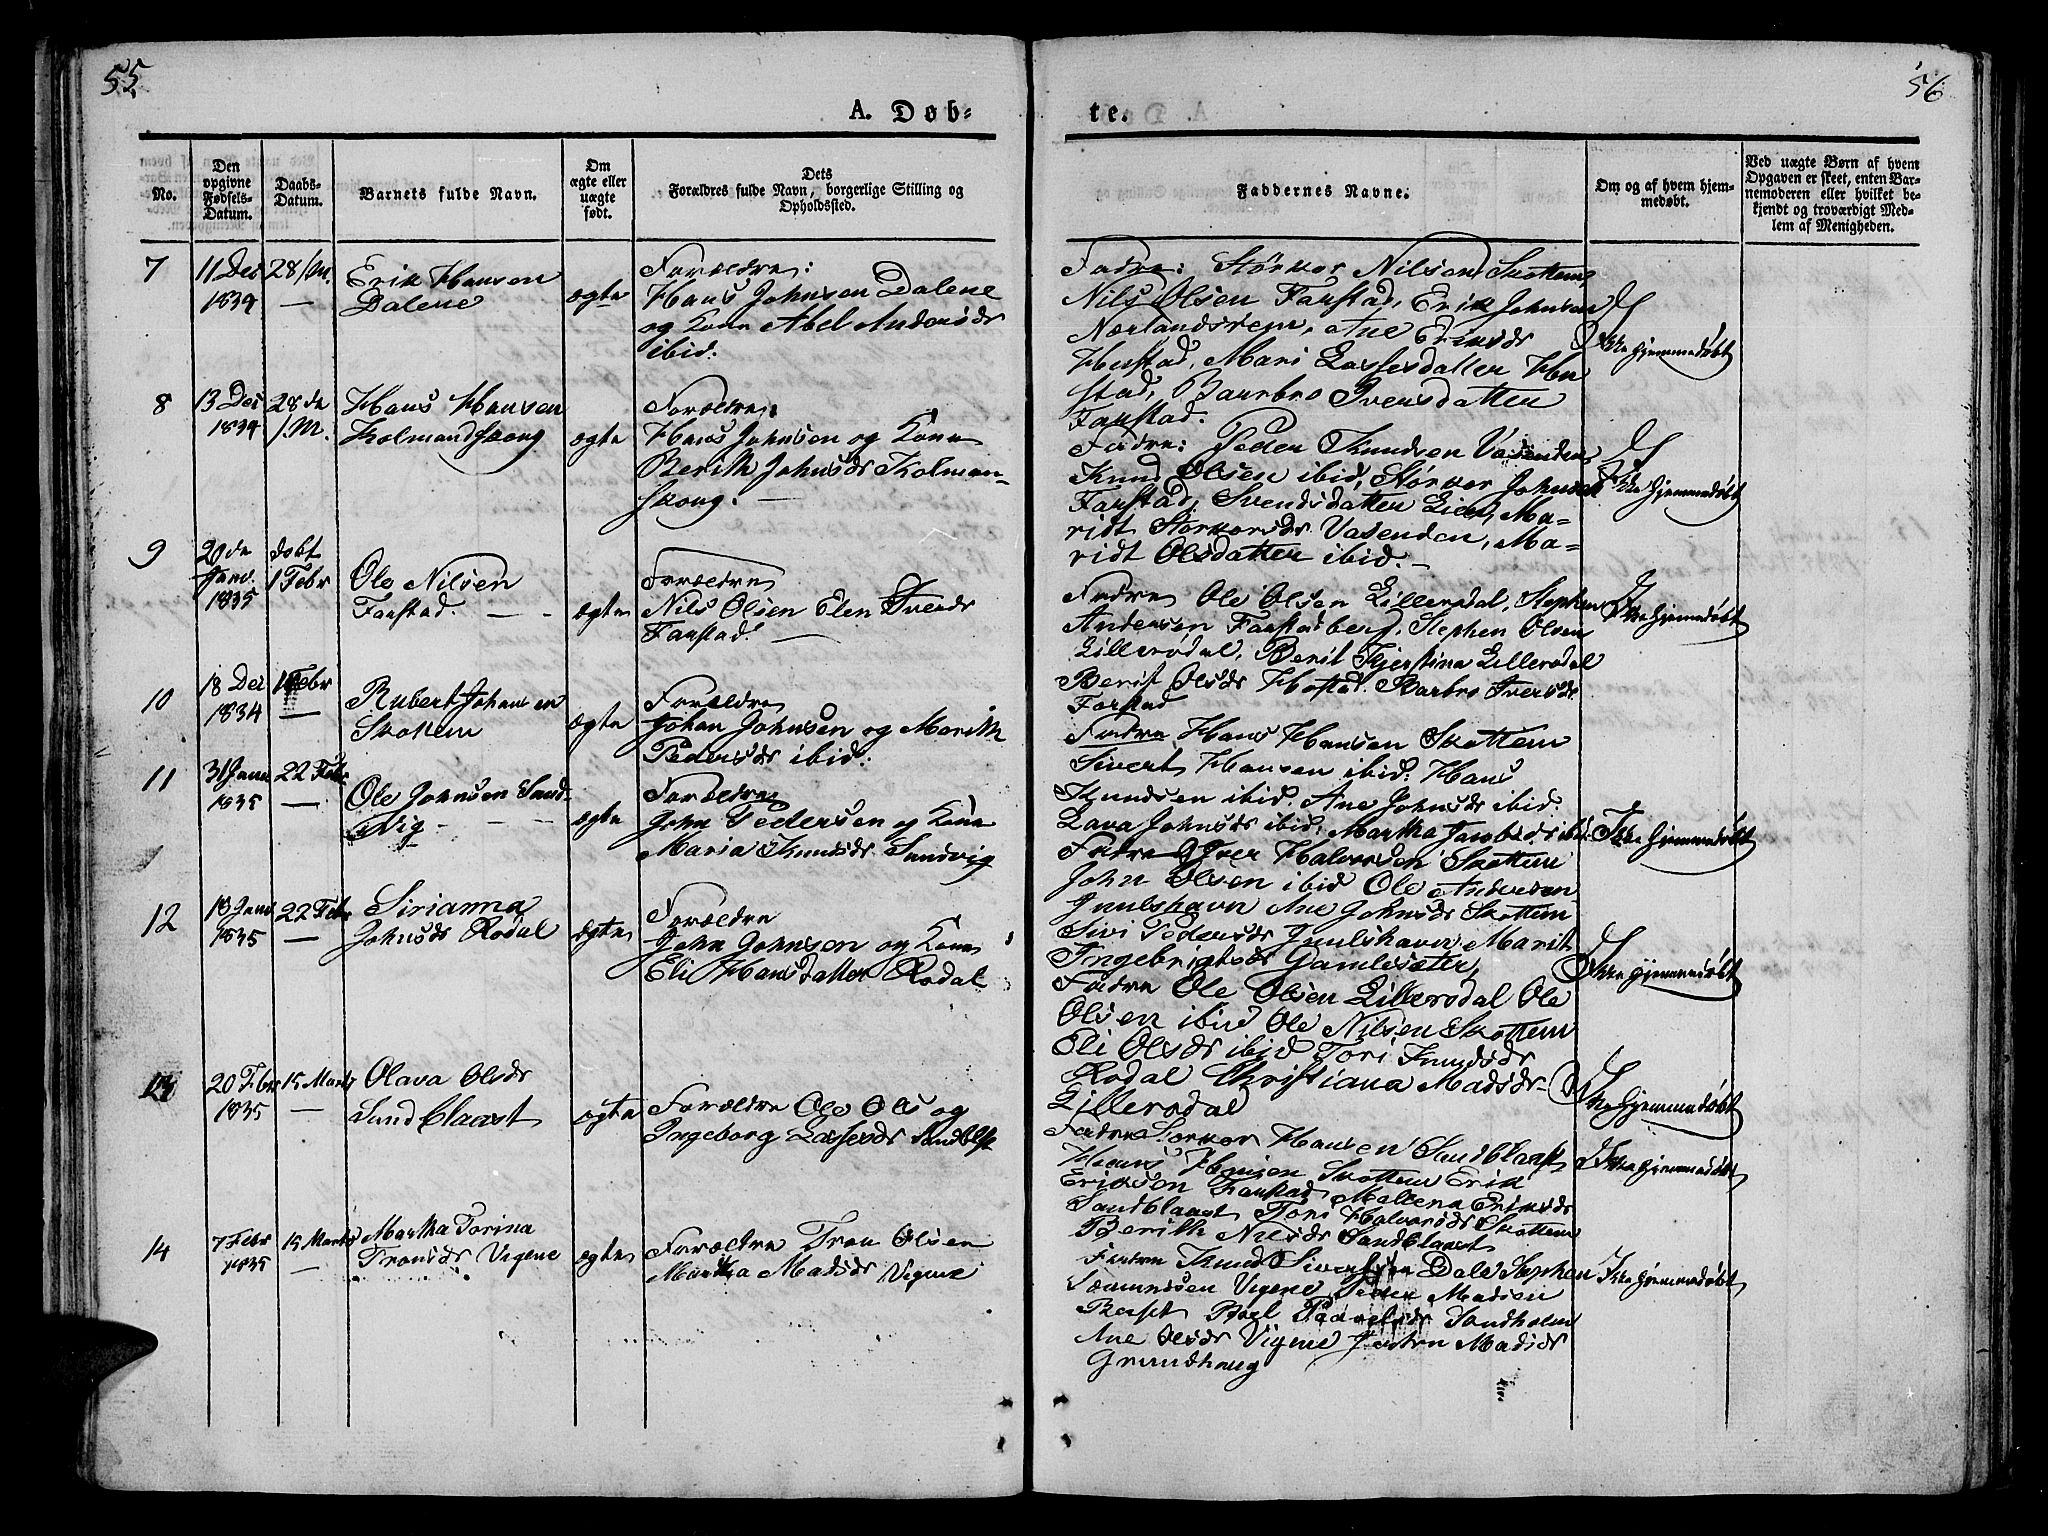 55
56
A. Døb-
te.
No.
Den
opgivne
Fødsels-
Datum.
Daabs-
Datum.
Barnets fulde Navn.
Om
ægte eller
uægte
født.
Dets
Forældres fulde Navn, borgerlige Stilling og
Opholdssted.
Faddernes Navne.
Om og af hvem hjem-
medøbt.
Ved uægte Børn af hvem
Opgaven er skeet, enten Bar-
nemoderen eller hvilket be-
kjendt og troværdigt Med-
lem af Menigheden.
7
11 Des
1834
28 /M.
—
Erik Hansen
Dalene
ægte
Forældre:
Hans Johnsen Dalene
og Kone Abel Andersdr
ibid.
Fadre: Størker Nilsen Skottem
Nils Olsen Farstad, Erik Johnsen
Nærlandsrem, Ane Eriksdr
Hustad, Mari Lassesdatter Hu
stad, Baarbro Iversdatter
Farstad.
Ikke hjemmedøbt
8
13 Des
1834
28 de
/M.
Hans Hansen
Kolmandskong
ægte
Forældre:
Hans Johnsen og Kone
Berith Johnsdr Kolman-
skong. —
Fadre: Peder Knudsen Vasenden,
Knud Olsen ibid, Størker Johnsen
Farstad, Svendsdatter Lien, Ma-
ridt Størkorsdr Vasenden, Ma-
ridt Olsdatter ibid. —
Ikke hjemmedøbt
9
20 de
Jand.
1835
døbt
1 Febr
Ole Nilsen
Farstad. — -
ægte
Forældre
Nils Olsen Elen Svends
Farstad. —
Fadre Ole Olsen Lillerødal, Stephen
Andersen Farstadberg, Stephen Olsen
Lillerødal, Berit Kjerstina Lillerodal
Berit Olsdr Hostad. Barbro Iversdr
Farstad
Ikke hjemmedøbt
10
18 Des
1834
1 Febr
—
Rubert Johansen
Skottem
ægte
Forældre
Johan Johnsen og Marith
Pedersdr ibid:
Fadre Hans Hansen Skottem
Sivert Hansen ibid: Hans
Knudsen ibid. Ane Johnsdr ibid.
Lava Johnsdr ibid, Martha Jacobsdr ibid.
Ikke hjemmedøbt
11
31 Janu
1835
22 Febr
—
Ole Johnsen Sand-
Vig - - - -
ægte
Forældre
John Pedersen og Kone
Maria Knudsdr Sandvig
Fadre Iver Halvorsen Skottem
John Olsen ibid Ole Andersen
Juulshavn Ane Johnsdr Skottem
Sivi Pedersdr Juulshavn Marit
Ingebrigtsdr Gamlesæter,
Ikke hjemmedøbt
12
18 Janu
1835
22 Febr
—
Sirianna
Johnsdr Rødal
ægte
Forældre
John Johnsen og Kone
Eli Hansdatter Rødal
Fadre Ole Olsen Lillerodal Ole
Olsen ibid Ole Nilsen Skottem
Eli Olsdr ibid Tori Knudsdr
Rødal Christiana Madsdr -
Lillerodal
Ikke hjemmedøbt
13
20 Febr
1835
15 Marts
—
Olava Olsdr
Sandblaast
ægte
Forældre Ole Ols og
Ingeborg Lassesdr Sandblst
Fadre Storker Hansen Sandblaast
Hans Hansen Skottem Erik
Eriksen Farstad Mallena Eriksdr
Sandblaast Tori Halvorsdr Skottem
Berith Nilsdr Sandblaast
Ikke hjemmedøbt
14
7 Febr
1835
15 Marts
—
Martha Torina
Tronsdr Vigene
ægte
Forældre Tron Olsen
Martha Madsdr Vigene
Fadre Knud Dale Stephen
Sæmundsen Vigene Peder Madsen
Berset Paavelsdr Sandholm
Ane Olsdr Vigene Madsdr
Grundhaug
Ikke hjemmedøbt